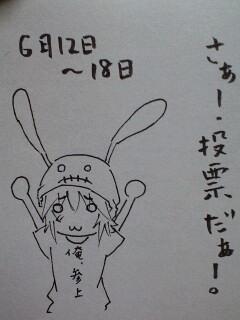 6月12日
～18日
さぁー・投票だぁー。
俺、参上